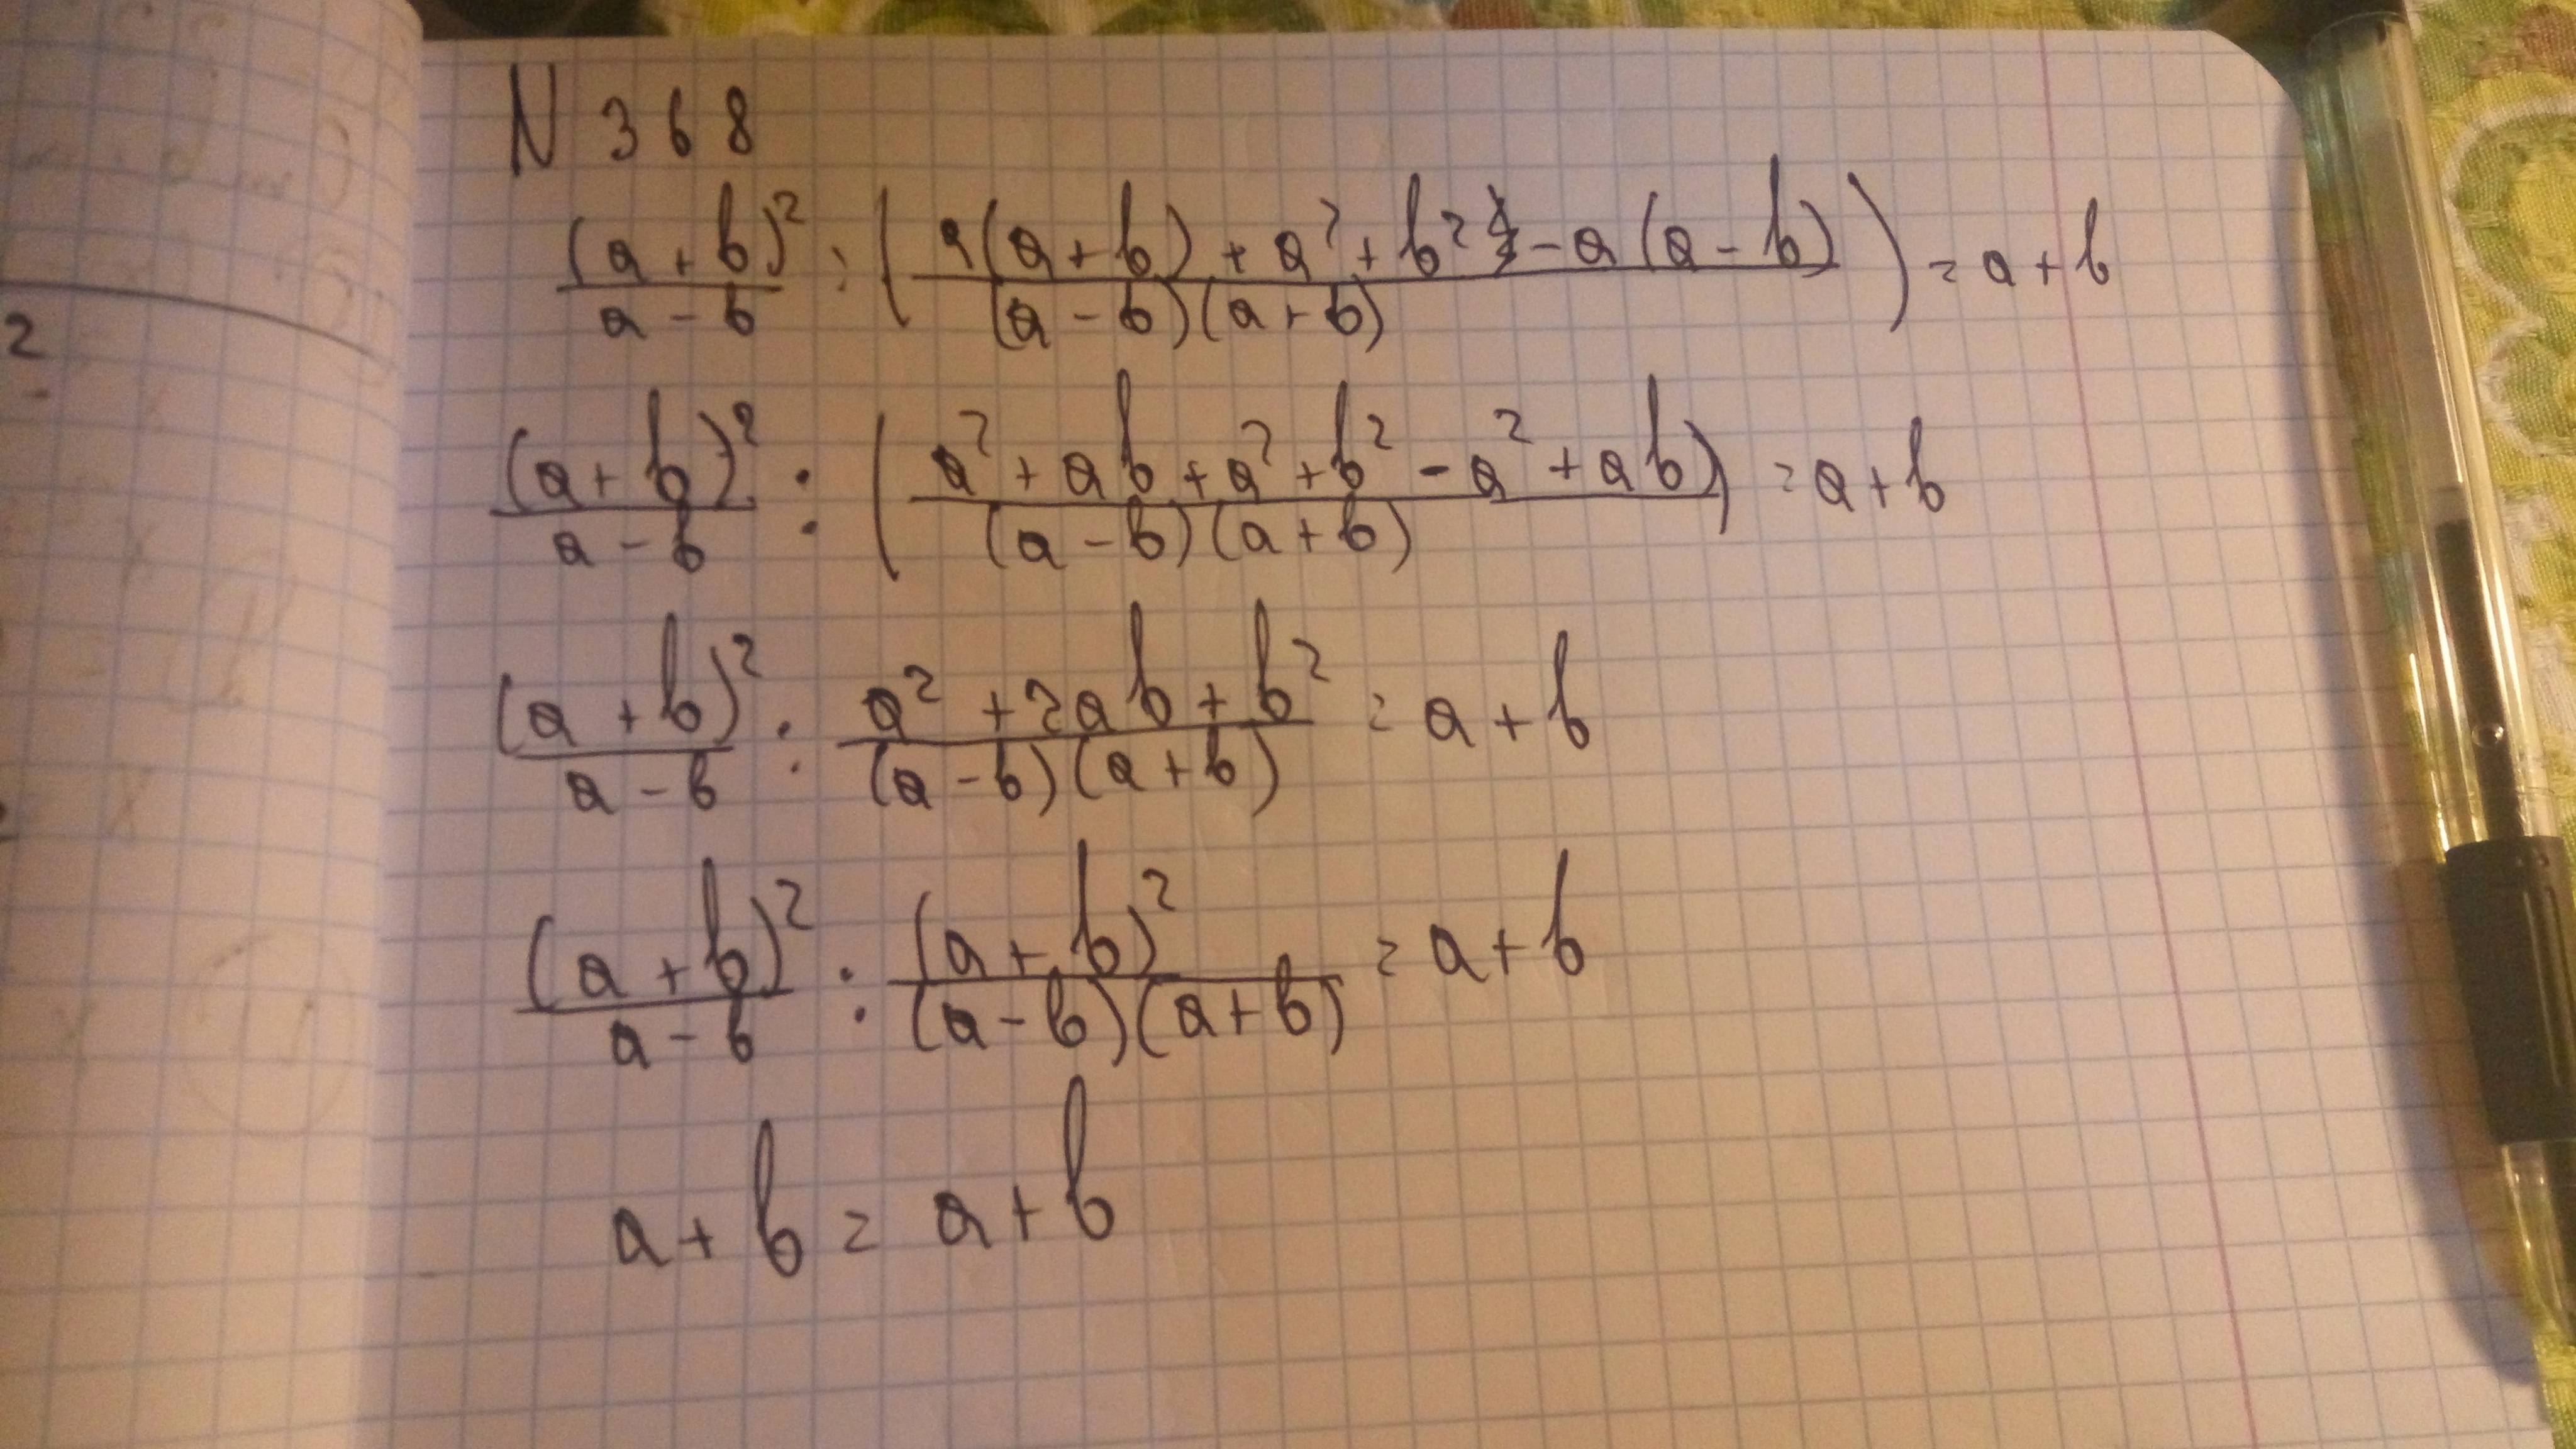 N 368
(a+b)²/(a-b) : ( (a(a+b) + a² + b² - a(a-b)) / ((a-b)(a+b)) ) = a+b
(a+b)²/(a-b) : ( (a² + ab + a² + b² - a² + ab) / ((a-b)(a+b)) ) = a+b
(a+b)²/(a-b) : (a² + 2ab + b²)/((a-b)(a+b)) = a+b
(a+b)²/(a-b) : (a+b)²/((a-b)(a+b)) = a+b
a+b = a+b